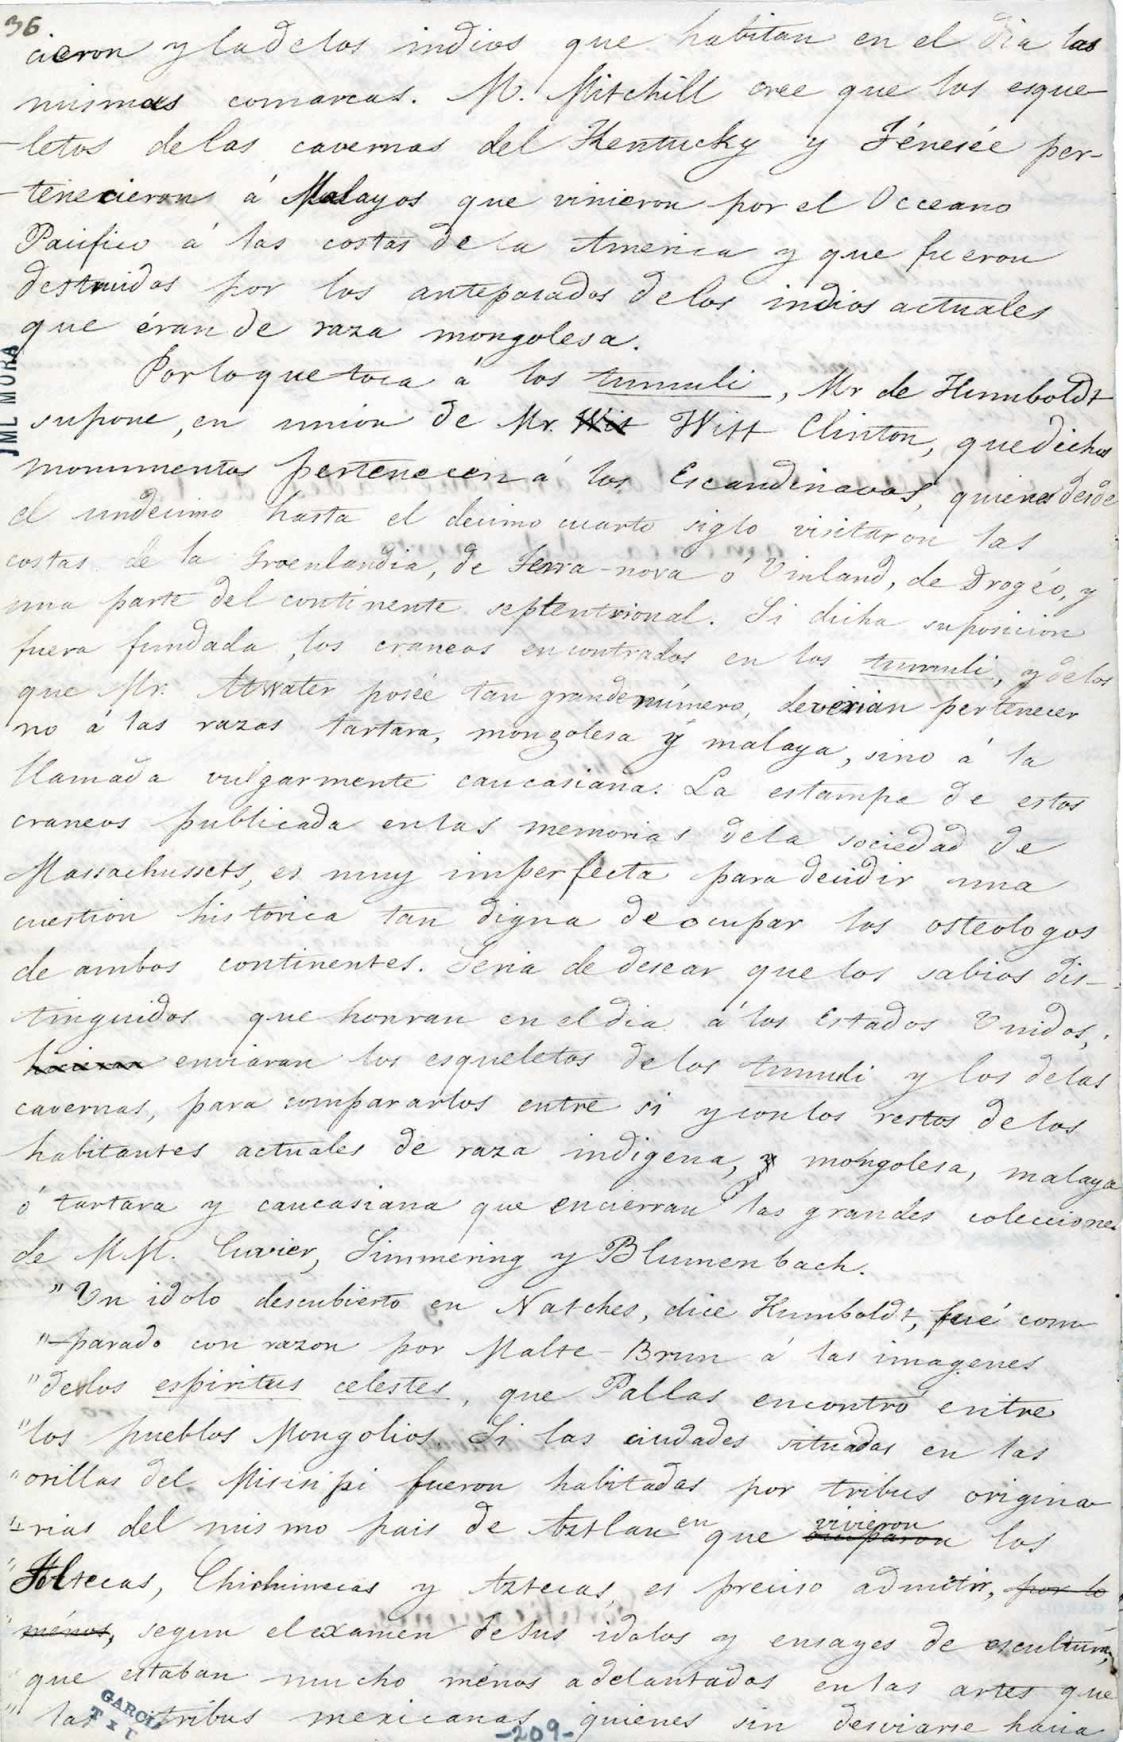 36
cieron y la de los indios que habitan en el dia las
mismas comarcas. M. Mitchill cree que los esque-
-letos de las cavernas del Kentucky y Ténesée per-
-tenecieron á Malayos que vinieron por el Occeano
Pacifico á las costas de la America y que fueron
destruidos por los antepasados de los indios actuales
que éran de raza mongolesa.
Por lo que toca á los tumuli, Mr de Humboldt
supone, en unión de Mr. Wit Witt Clinton, que dichos
monumentos pertenecen á los Escandinavos, quienes desde
el undecimo hasta el decimo cuarto siglo visitaron las
costas de la Groenlandia, de Terra-nova ó Vinland, de Drogéo, y
una parte del continente septentrional. Si dicha suposicion
fuera fundada, los craneos encontrados en los tumuli, y de los
que Mr. Atwater poséé tan grande número, deverian pertenecer
no á las razas tartara, mongolesa ý malaya, sino á la
llamada vulgarmente caucasiana. La estampa de estos
craneos publicada en las memorias de la sociedad de
Massachussets, es muy imperfecta para decidir una
cuestion historica tan digna de ocupar los osteologos
de ambos continentes. Seria de desear que los sabios dis-
tinguidos que honran en el dia á los Estados Unidos,
enviaran los esqueletos de los tumuli y los de las
cavernas, para compararlos entre si y con los restos de los
habitantes actuales de raza indigena, y mongolesa, malaya
ó tartara y caucasiana que encierran las grandes colecciones
de M.M. Cuvier, Simmering y Blumenbach.
"Un idolo descubierto en Natches, dice Humboldt, fué com
"-parado con razon por Malte-Brun á las imagenes
"de los espiritus celestes, que Pallas encontró entre
"los pueblos Mongolios. Si las ciudades situadas en las
"orillas del Misisipi fueron habitadas por tribus origina
"-rias del mismo pais de Aztlan en que ocuparon vivieron los
"Toltecas, Chichimecas y Aztecas, es preciso admitir, por lo
"ménos, segun el examen de sus idolos y ensayes de escultura,
"que estaban mucho ménos adelantados en las artes que
"las tribus mexicanas quienes sin desviarse hacia
-209-
JML MORA